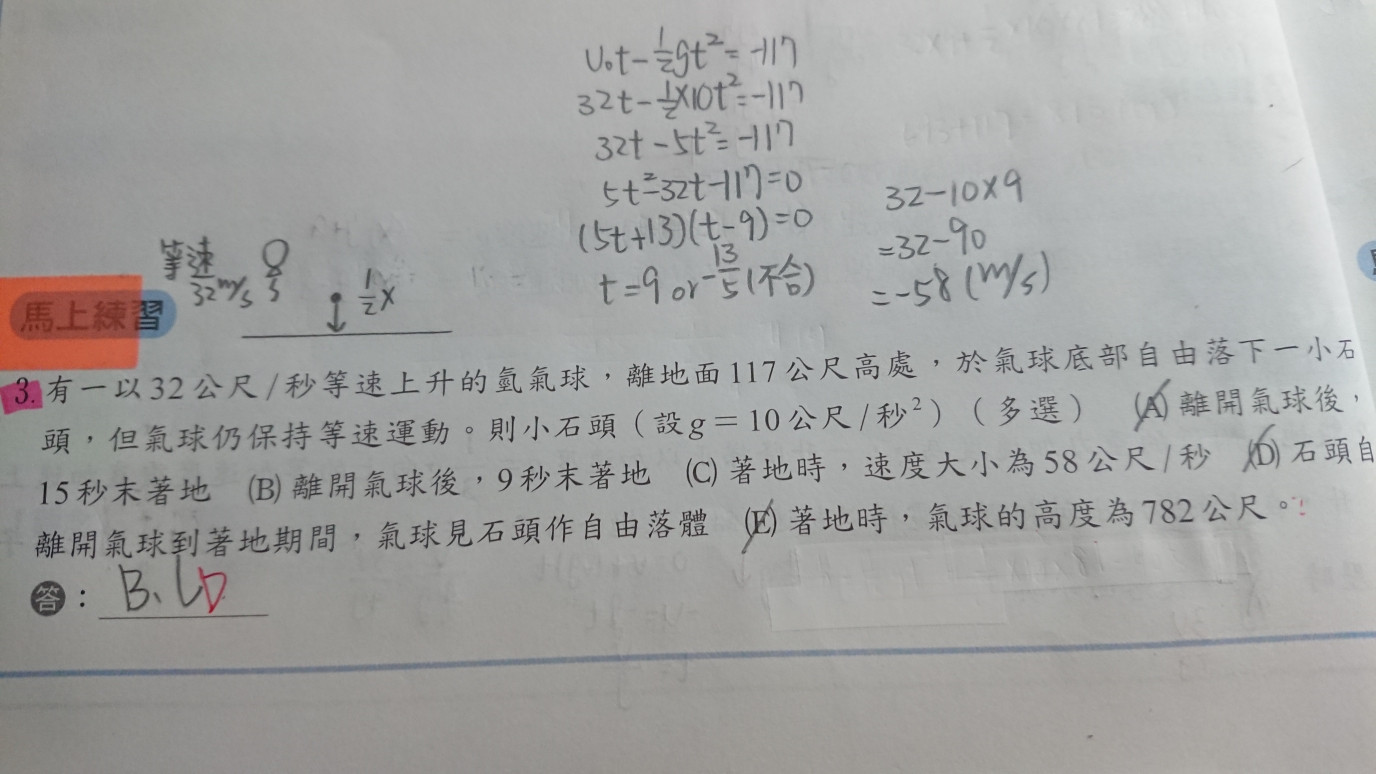 U₀t-½gt²=-117
32t-½×10t²=-117
32t-5t²=-117
5t²-32t-117=0
(5t+13)(t-9)=0
t=9 or -13/5 (不合)
32-10×9
=32-90
=-58 (m/s)
等速
32m/s
½x
馬上練習
3. 有一以32公尺/秒等速上升的氫氣球，離地面117公尺高處，於氣球底部自由落下一小石
頭，但氣球仍保持等速運動。則小石頭（設g＝10公尺/秒²）（多選） (A) 離開氣球後，
15秒末著地 (B) 離開氣球後，9秒末著地 (C) 著地時，速度大小為58公尺/秒 (D) 石頭自
離開氣球到著地期間，氣球見石頭作自由落體 (E) 著地時，氣球的高度為782公尺。
答：B、CD